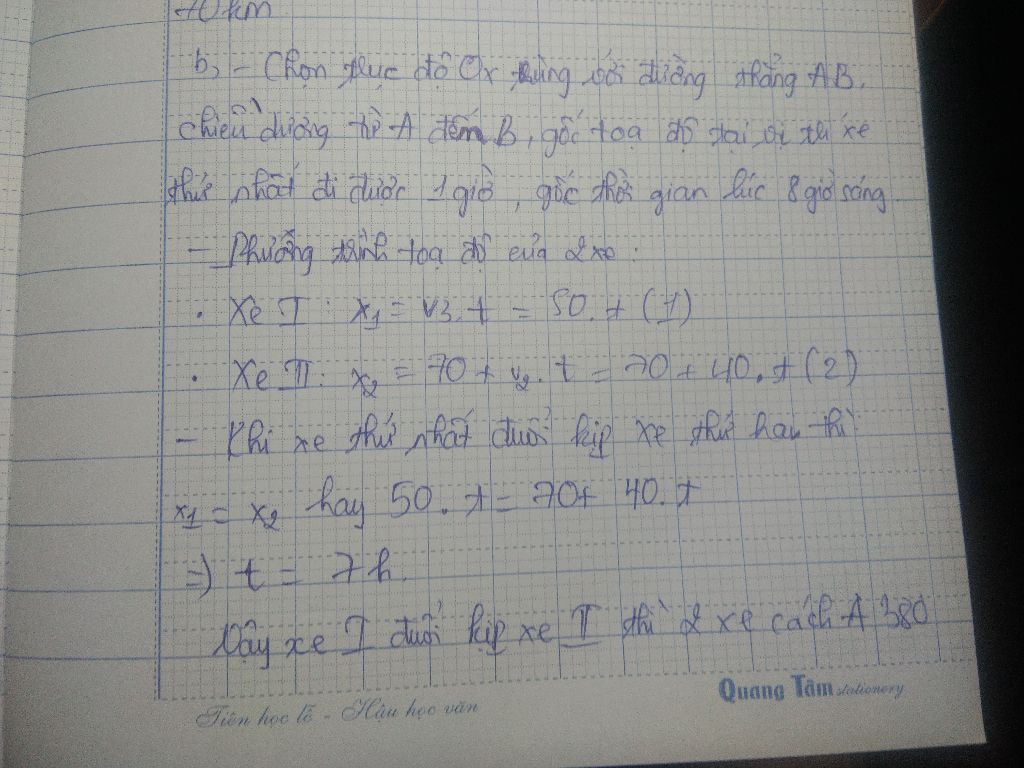 70 km
b, - Chọn trục độ Ox trùng với đường thẳng AB.
chiều dương từ A đến B, gốc toạ độ tại vị trí xe
thứ nhất đi được 1 giờ, gốc thời gian lúc 8 giờ sáng.
- Phương trình toạ độ của 2 xe:
. Xe I: x1 = v3.t = 50.t (1)
. Xe II: x2 = 70 + v2.t = 70 + 40.t (2)
- Khi xe thứ nhất đuổi kịp xe thứ hai thì:
x1 = x2 hay 50.t = 70 + 40.t
=> t = 7h.
Vậy xe I đuổi kịp xe II thì 2 xe cách A 380
Tiên học lễ - Hậu học văn
Quang Tâm stationery